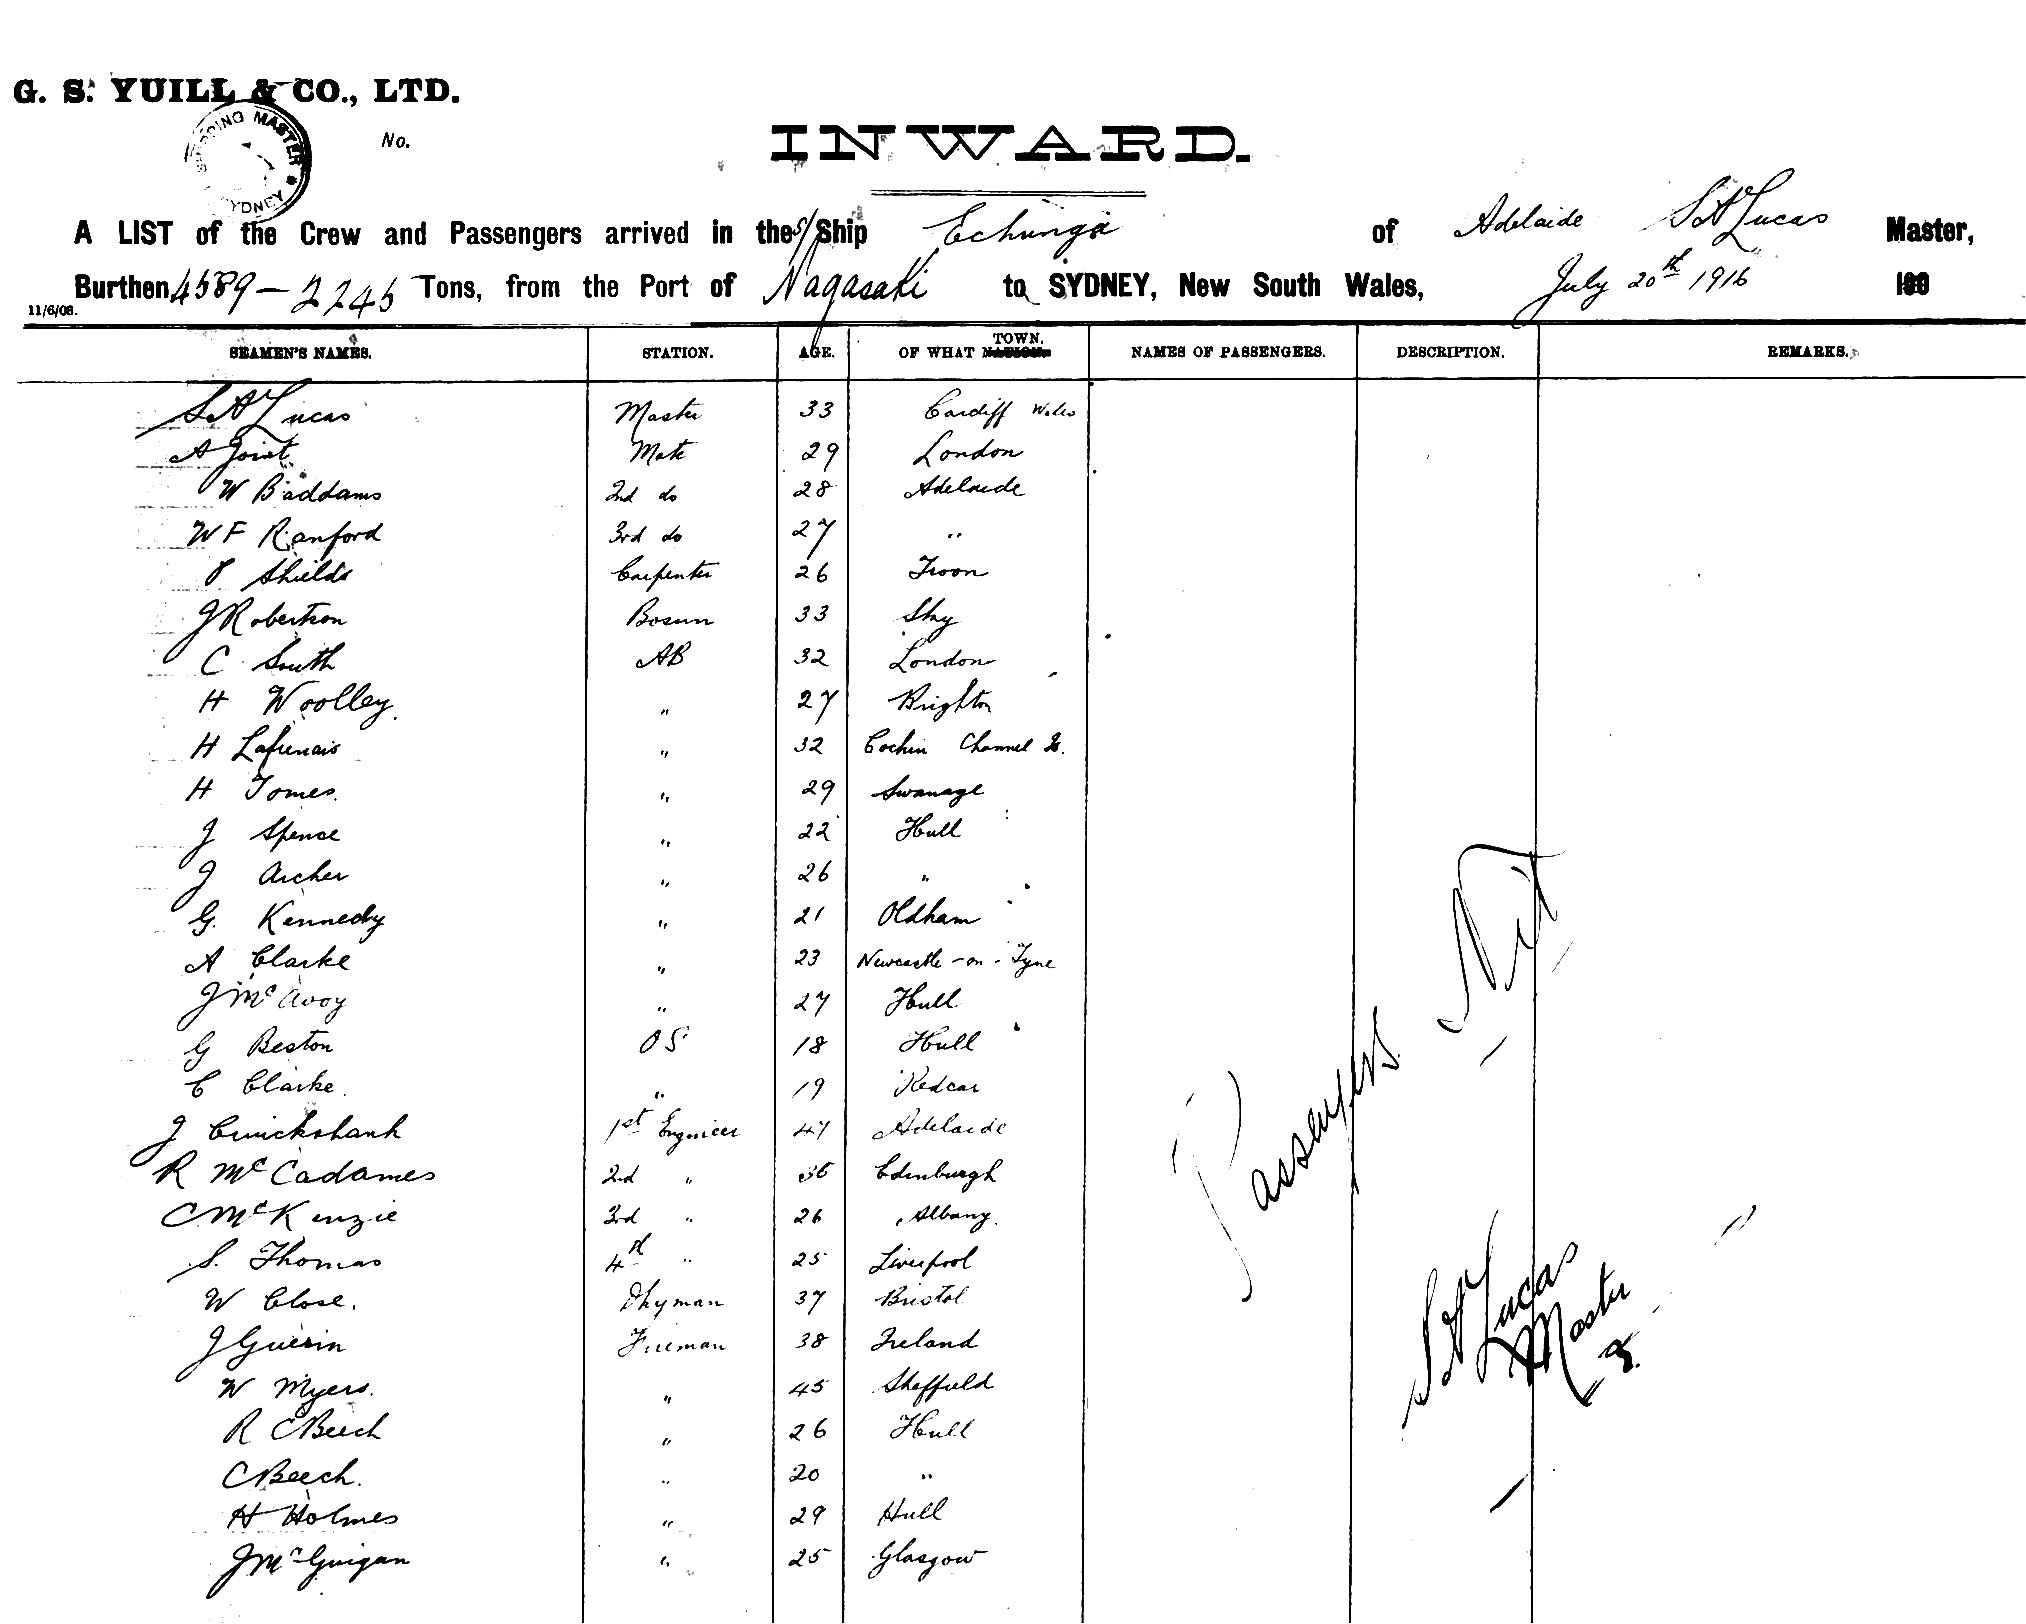 G. S. YUILL & CO., LTD.
SHIPPING MASTER * SYDNEY
No.
INWARD.
A LIST of the Crew and Passengers arrived in the S/Ship Echunga of Adelaide S A Lucas Master,
Burthen 4589 - 2245 Tons, from the Port of Nagasaki to SYDNEY, New South Wales, July 20th 1916
11/6/08.
SEAMEN'S NAMES. STATION. AGE. OF WHAT NATION. TOWN. NAMES OF PASSENGERS. DESCRIPTION. REMARKS.
S A Lucas Master 33 Cardiff Wales
A Joint Mate 29 London
W Baddams 2nd do 28 Adelaide
W F Ranford 3rd do 27 "
Shields Carpenter 26 Troon
J Robertson Bosun 33 Sky
C South AB 32 London
H Woolley " 27 Brighton
H Lafrenais " 32 Channel Is.
H Tomes. " 29 Swanage
J Spence " 22 Hull
J Archer " 26 "
G. Kennedy " 21 Oldham
A Clarke " 23 Newcastle-on-Tyne
J McAvoy " 27 Hull
G Beston OS 18 Hull
C Clarke. " 19 Redcar
J Cruickshank 1st Engnieer 47 Adelaide
R McCadames 2nd " 36 Edinburgh
C McKenzie 3rd " 26 Albany.
S. Thomas 4th " 25 Liverpool
W Close. Dkyman 37 Bristol
J Guerin Fireman 38 Ireland
W Myers. " 45 Sheffield
R C Beech " 26 Hull
C Beech. " 20 "
H Holmes " 29 Hull
J McGuigan " 25 Glasgow
Passengers Nil
S A Lucas
Master